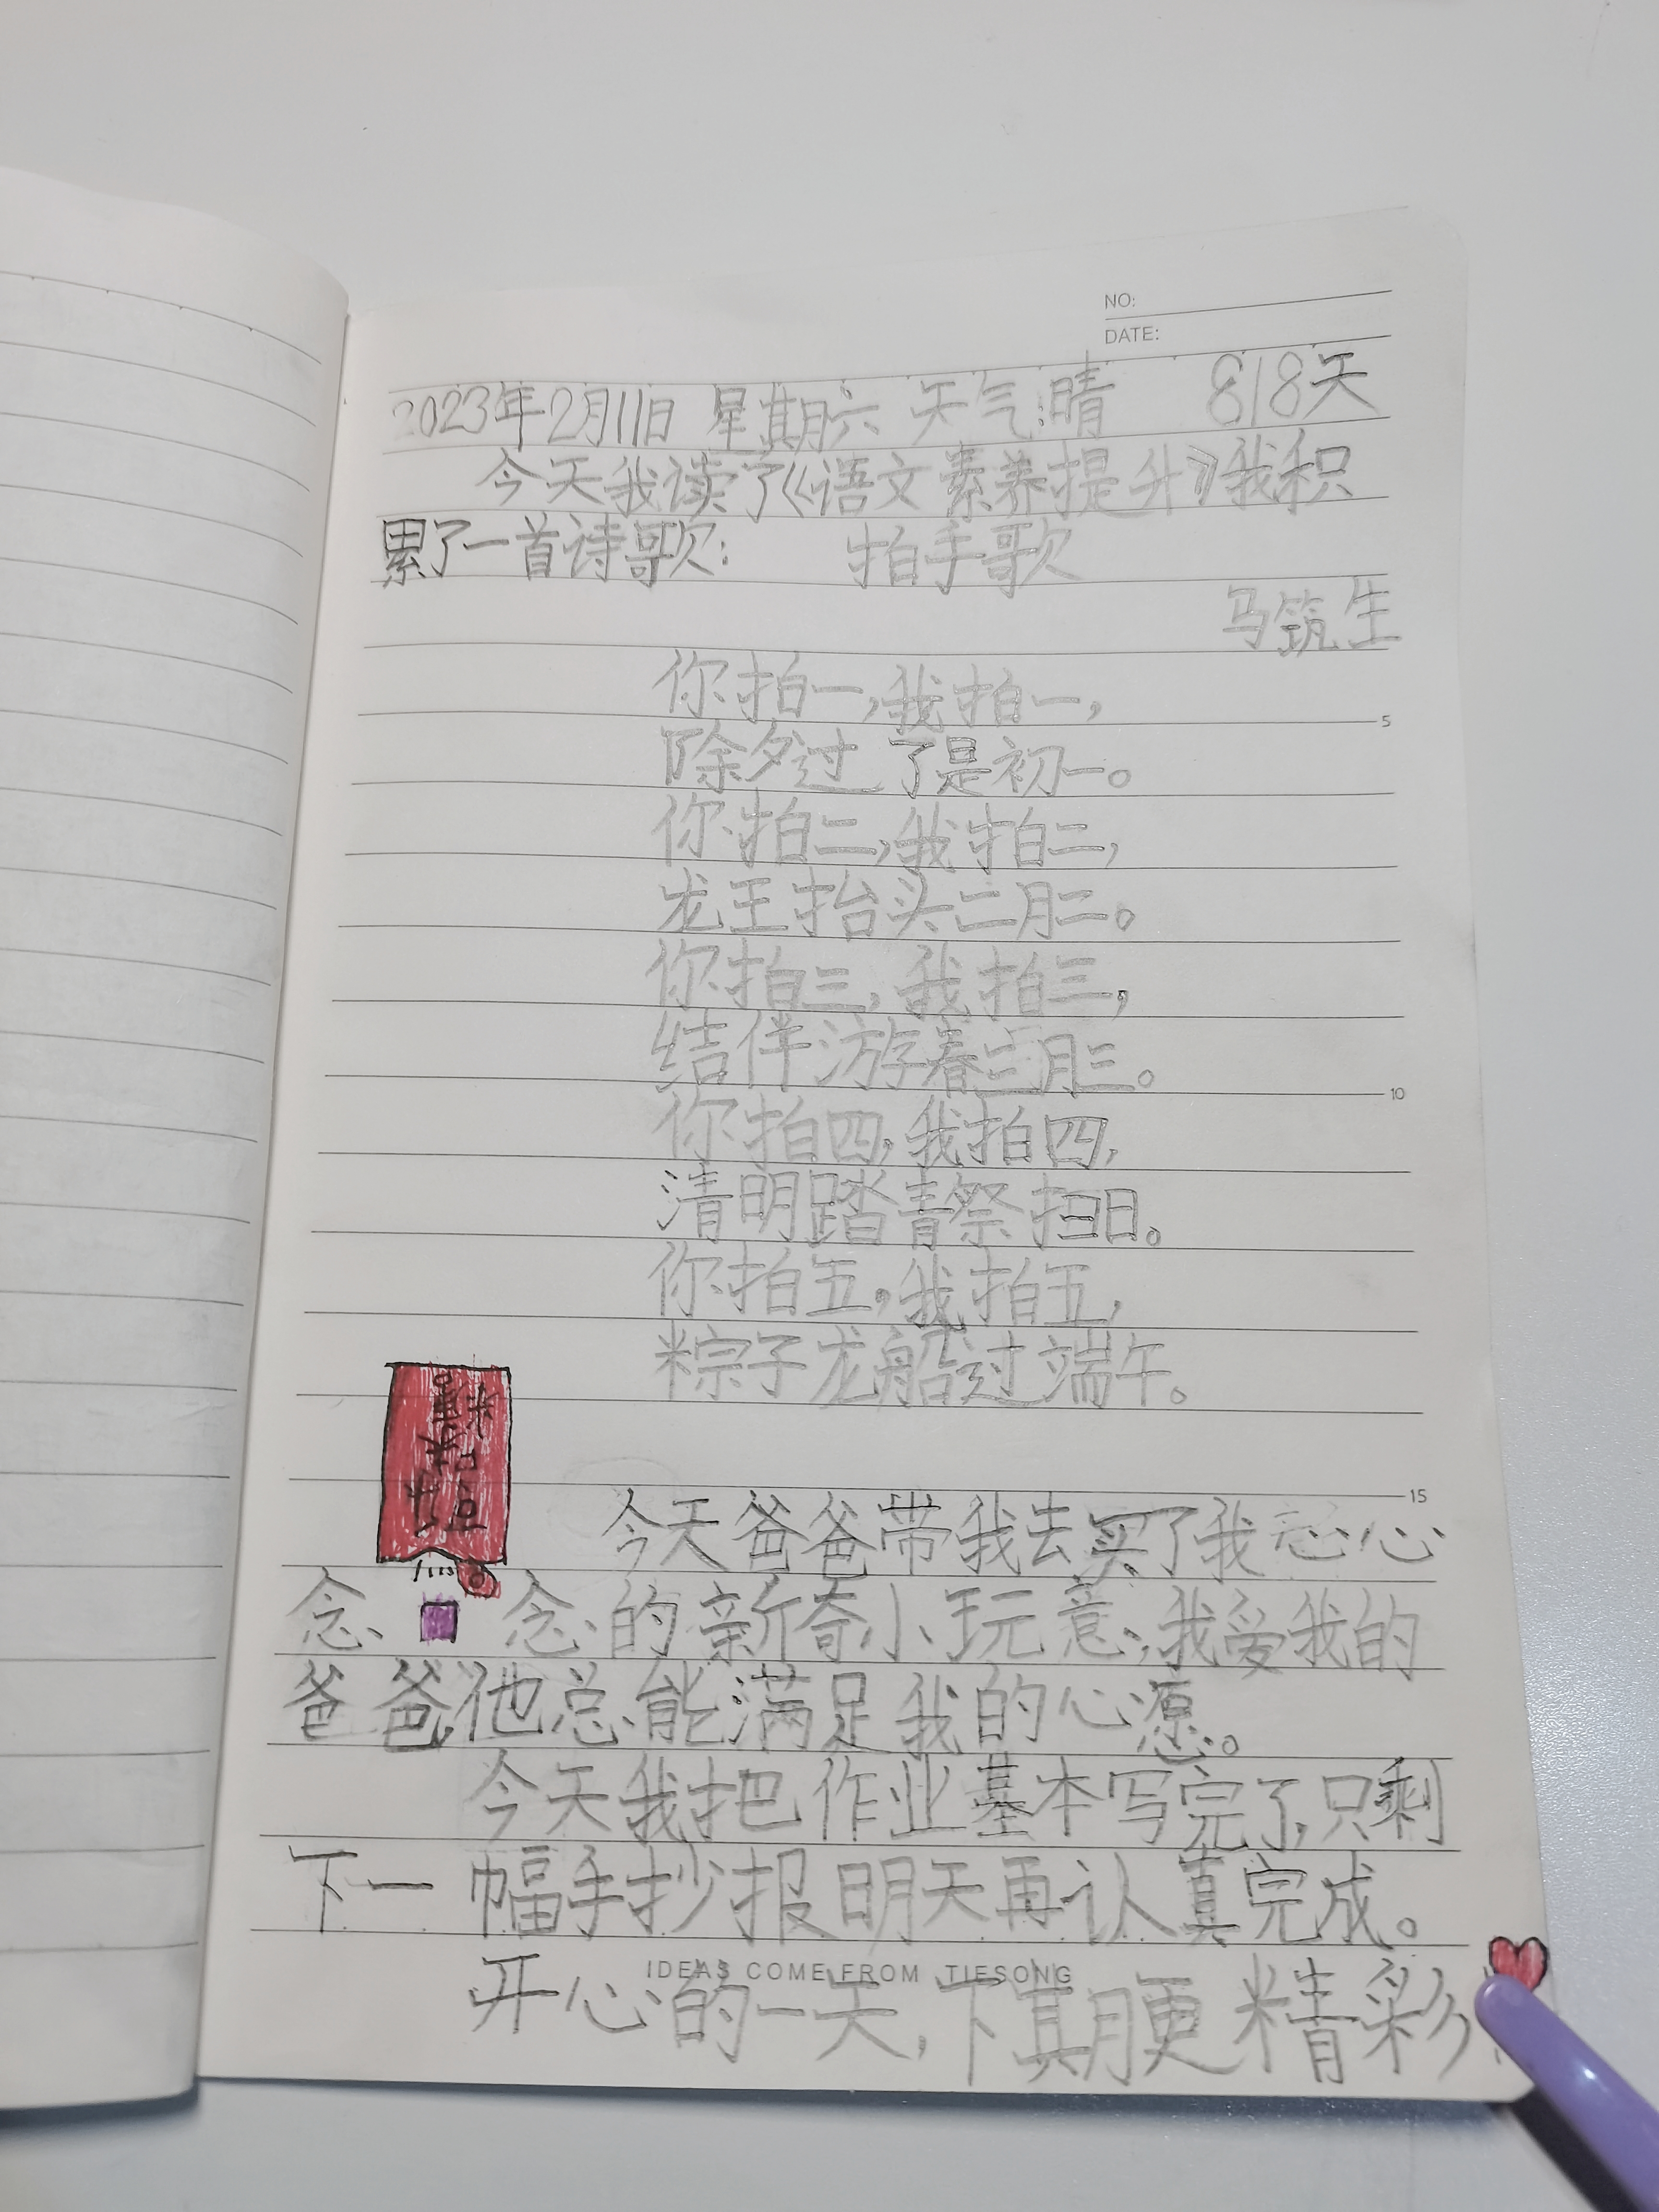 NO:
DATE:
2023年2月11日 星期六 天气:晴 818天
今天我读了《语文素养提升》我积
累了一首诗歌: 拍手歌
马筑生
你拍一,我拍一,
除夕过了是初一。
你拍二,我拍二,
龙王抬头二月二。
你拍三,我拍三,
结伴游春三月三。
你拍四,我拍四,
清明踏青祭扫日。
你拍五,我拍五,
粽子龙船过端午。
今天爸爸带我去买了我心心
念 念的新奇小玩意,我爱我的
爸爸,他总能满足我的心愿。
今天我把作业基本写完了,只剩
下一幅手抄报明天再认真完成。
IDEAS COME FROM TIESONG
开心的一天,下期更精彩
5
10
15